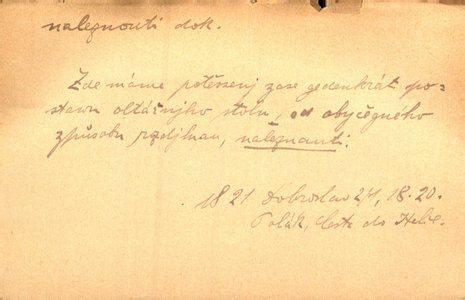 naleznouti dok.
Zde máme potěssenj zase gedenkrát po=
stawu oltářnjho stolu, od obyčegného
způsobu rozdjlnau, naleznauti.
1821 Dobroslaw 2/1, 18-20.
Polák, Cesta do Italie.